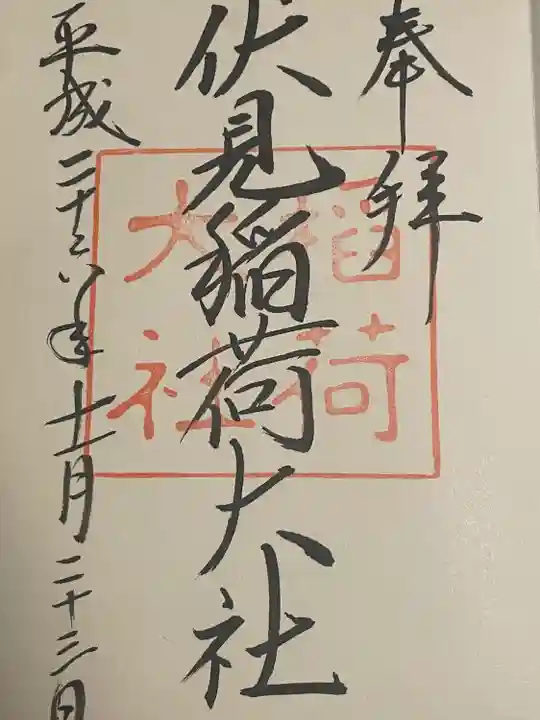 奉拝
伏見稲荷大社
稲荷
大社
平成二十六年十一月二十三日